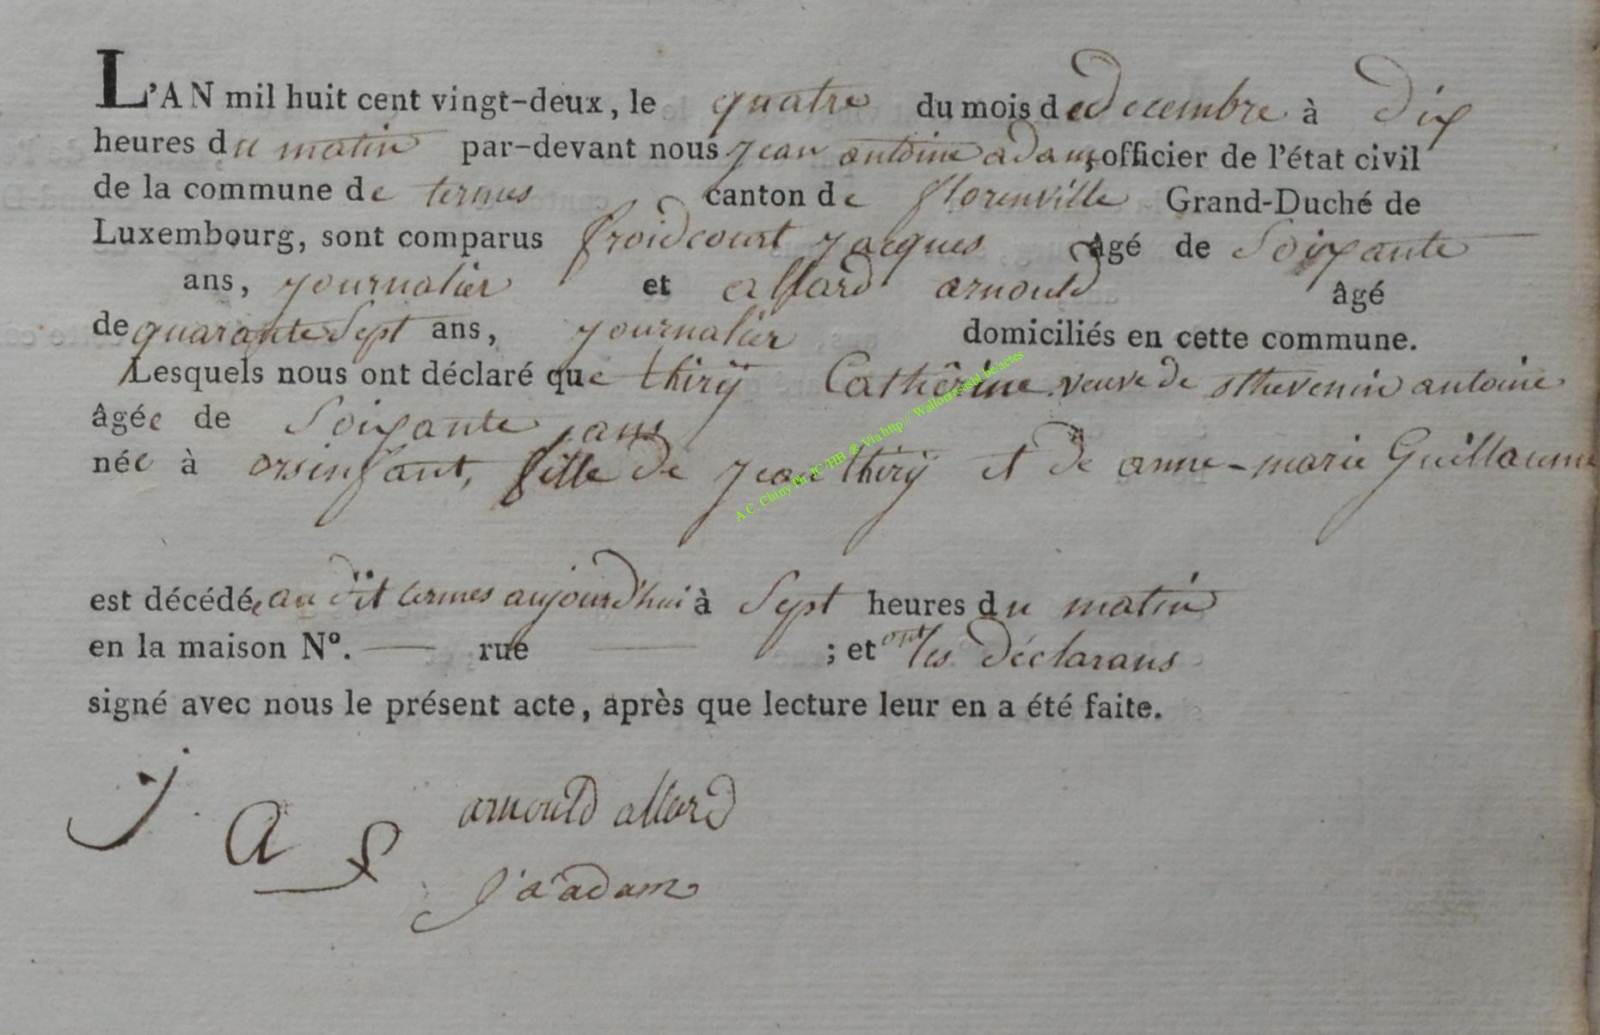 L'AN mil huit cent vingt-deux, le quatre du mois de decembre à dix
heures du matin par-devant nous jean antoine adam, officier de l'état civil
de la commune de termes canton de florenville Grand-Duché de
Luxembourg, sont comparus froidcourt jacques âgé de soixante
ans, journalier et allard arnould âgé
de quarante sept ans, journalier domiciliés en cette commune.
Lesquels nous ont déclaré que thirÿ Cathêrine veuve de sthevenin antoine
âgée de soixante ans
née à orsinfant, fille de jean thirÿ et de anne-marie Guillaume
est décédée au dit termes aujourd'hui à sept heures du matin
en la maison N°. — rue — ; et ont les déclarans
signé avec nous le présent acte, après que lecture leur en a été faite.
arnould allard
J a adam
A.C. Chiny Ph JC HB & Via http://Wallonia